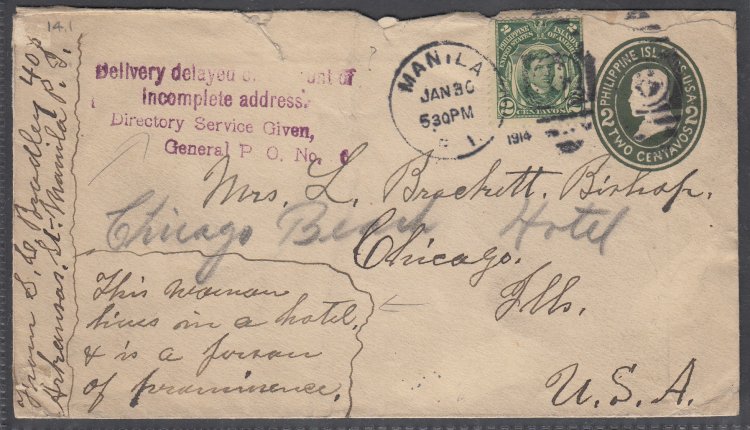 14.1
From S. C. Bradley 408
Arkansas. St. Manila P. I.
Delivery delayed on account of
incomplete address.
Directory Service Given,
General P. O. No.
MANILA
JAN 30
530PM
P. I.
1914
PHILIPPINE ISLANDS
UNITED STATES OF AMERICA
2 CENTAVOS 2
PHILIPPINE ISLANDS U.S.A.
2 TWO CENTAVOS 2
Mrs. L. Brackett. Bishop.
Chicago Beach Hotel
Chicago.
Ills.
U.S.A.
This woman
lives in a hotel,
& is a person
of prominence.